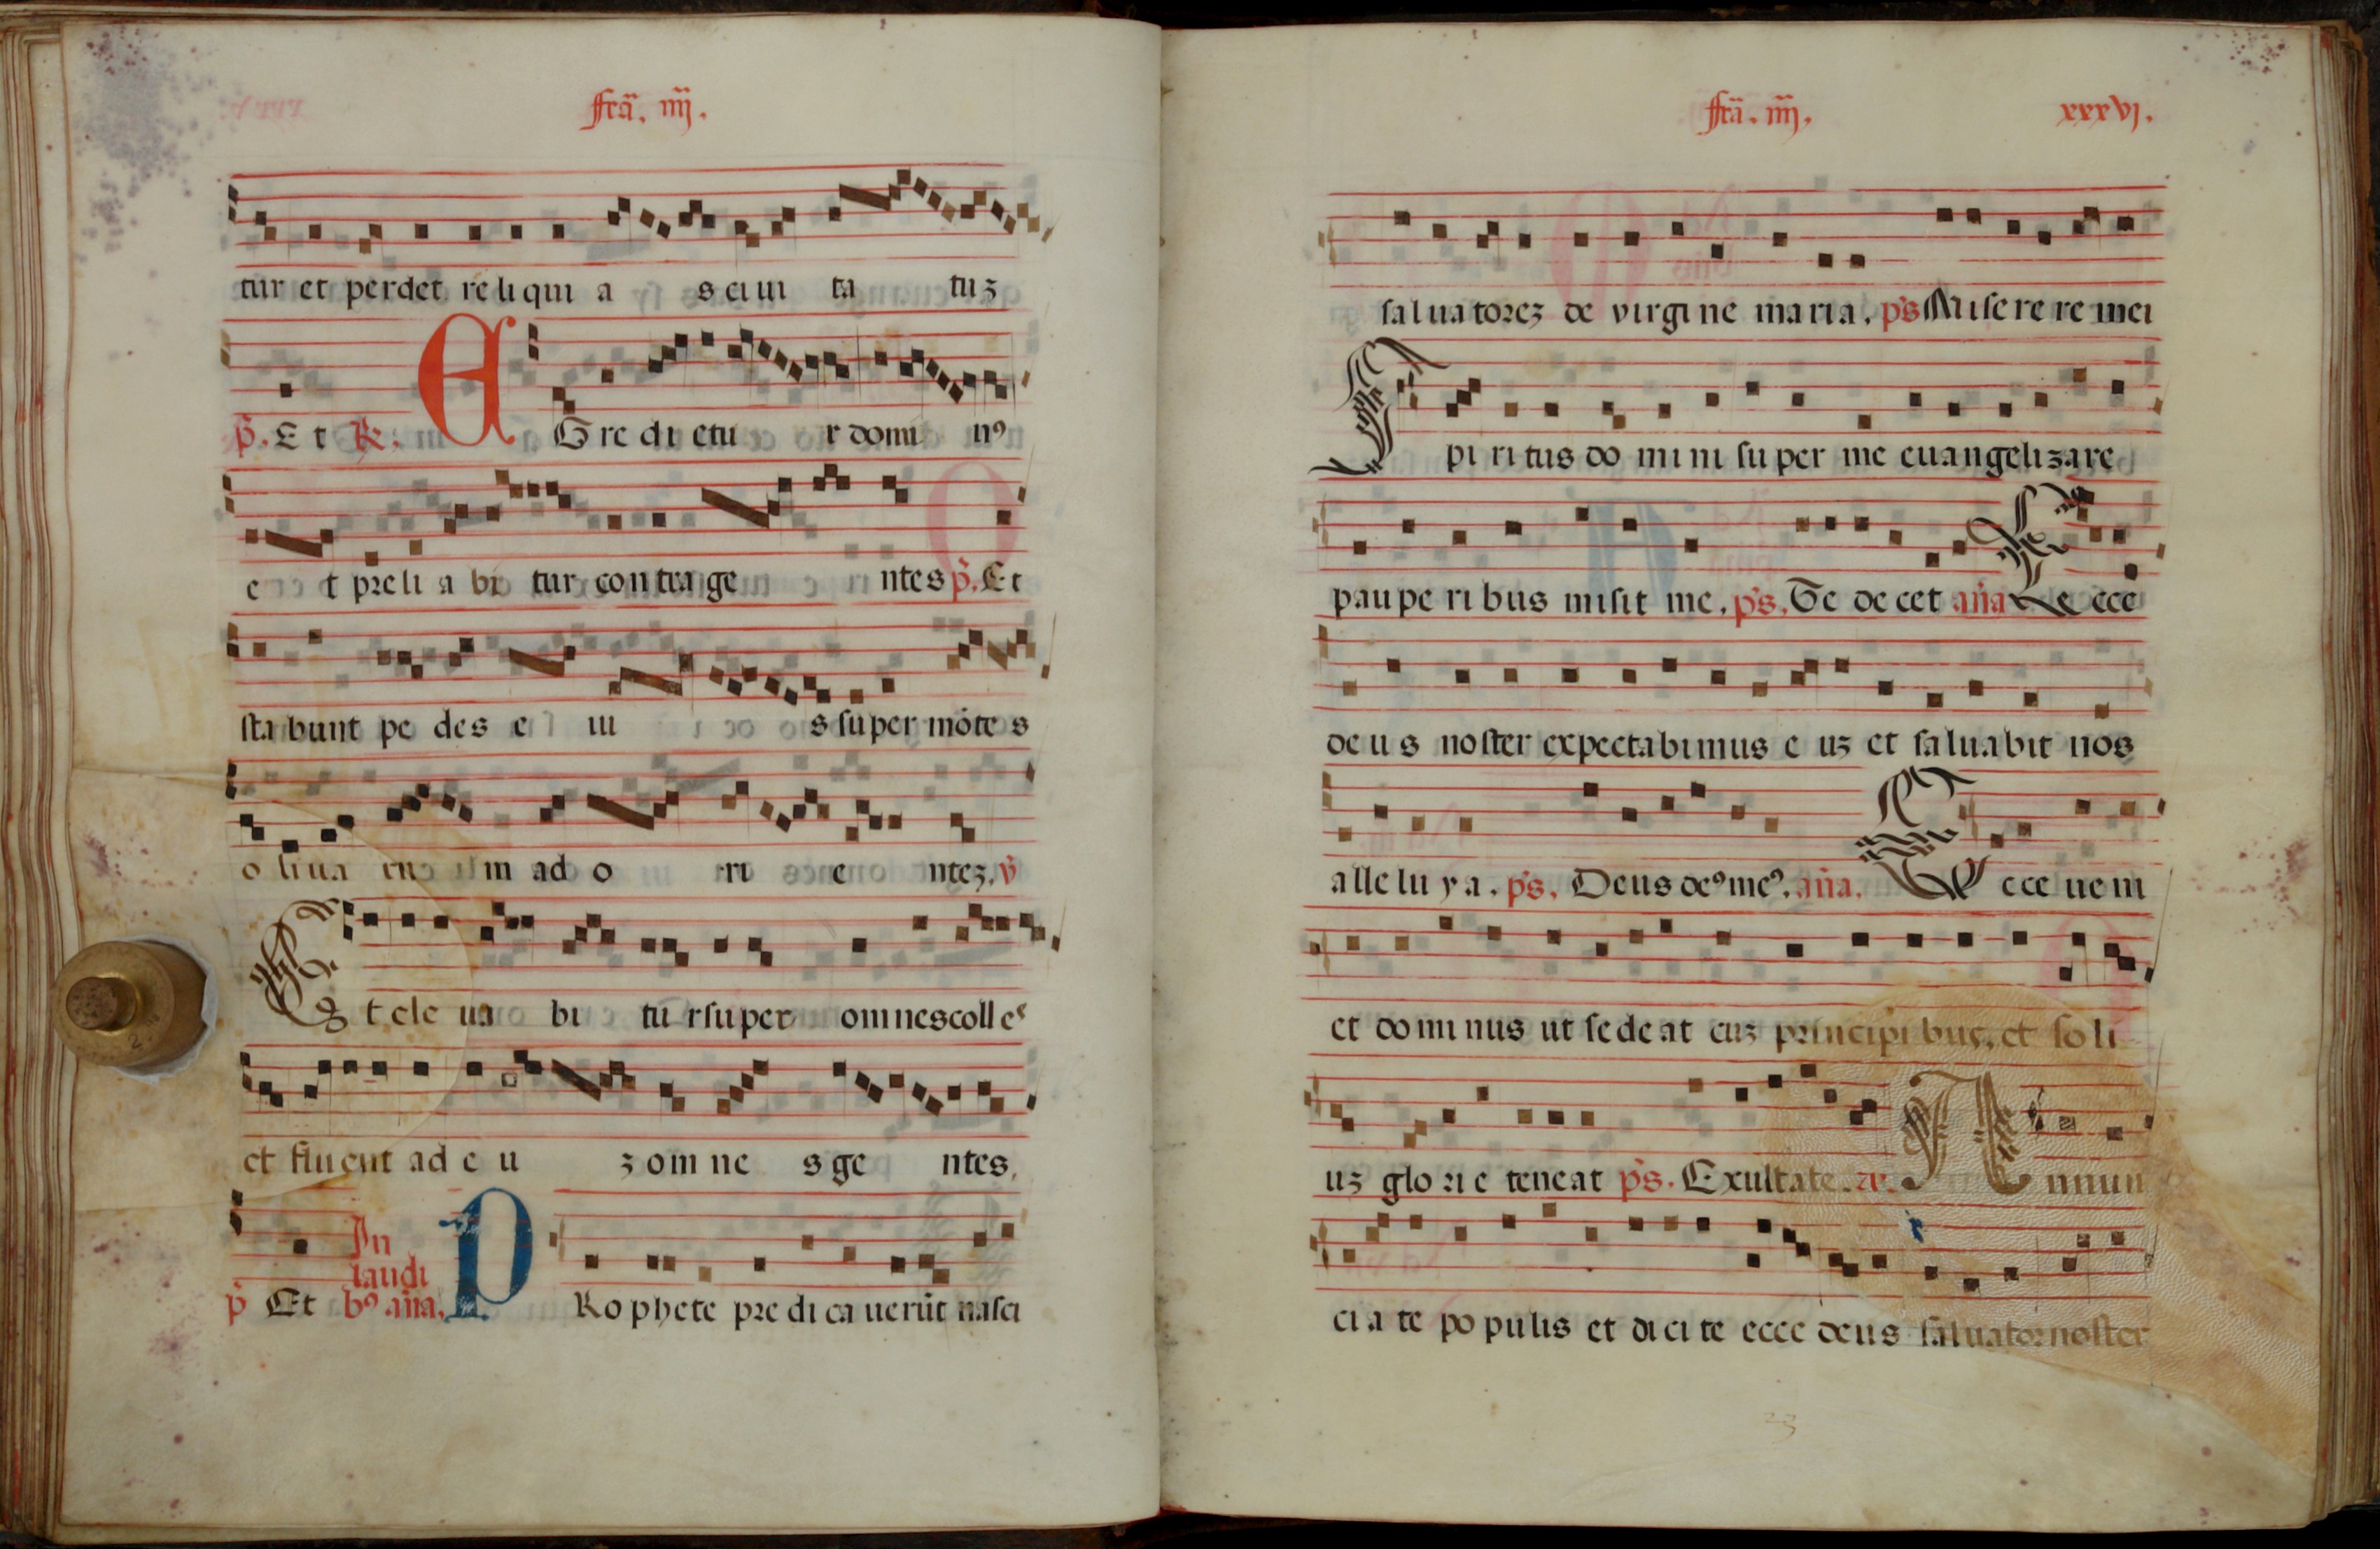 fr̃a. iiij.
tur et perdet reliquias ciuitatuz
p̃. Et ℟. EGredietur domin⁹
et preliabitur contra gentes p̃. Et
stabunt pedes eius super mõtes
oliuarum ad orientez. ṽ
Et eleuabitur super omnes colles
et fluent ad euz omnes gentes.
p̃ Et In laudib⁹ añа. PRophete predicauerũt nasci
fr̃a. iiij. xxxvj.
saluatorez de virgine maria. p̃s Miserere mei
Spiritus domini super me euangelizare
pauperibus misit me. p̃s. Te decet añа Ecce
deus noster expectabimus euz et saluabit nos
alleluya. p̃s. Deus de⁹ me⁹. añа. Ecce ueni
et dominus ut sedeat cuz principibus, et soli
uz glorie teneat p̃s. Exultate. Annun
ciate populis et dicite ecce deus saluator noster